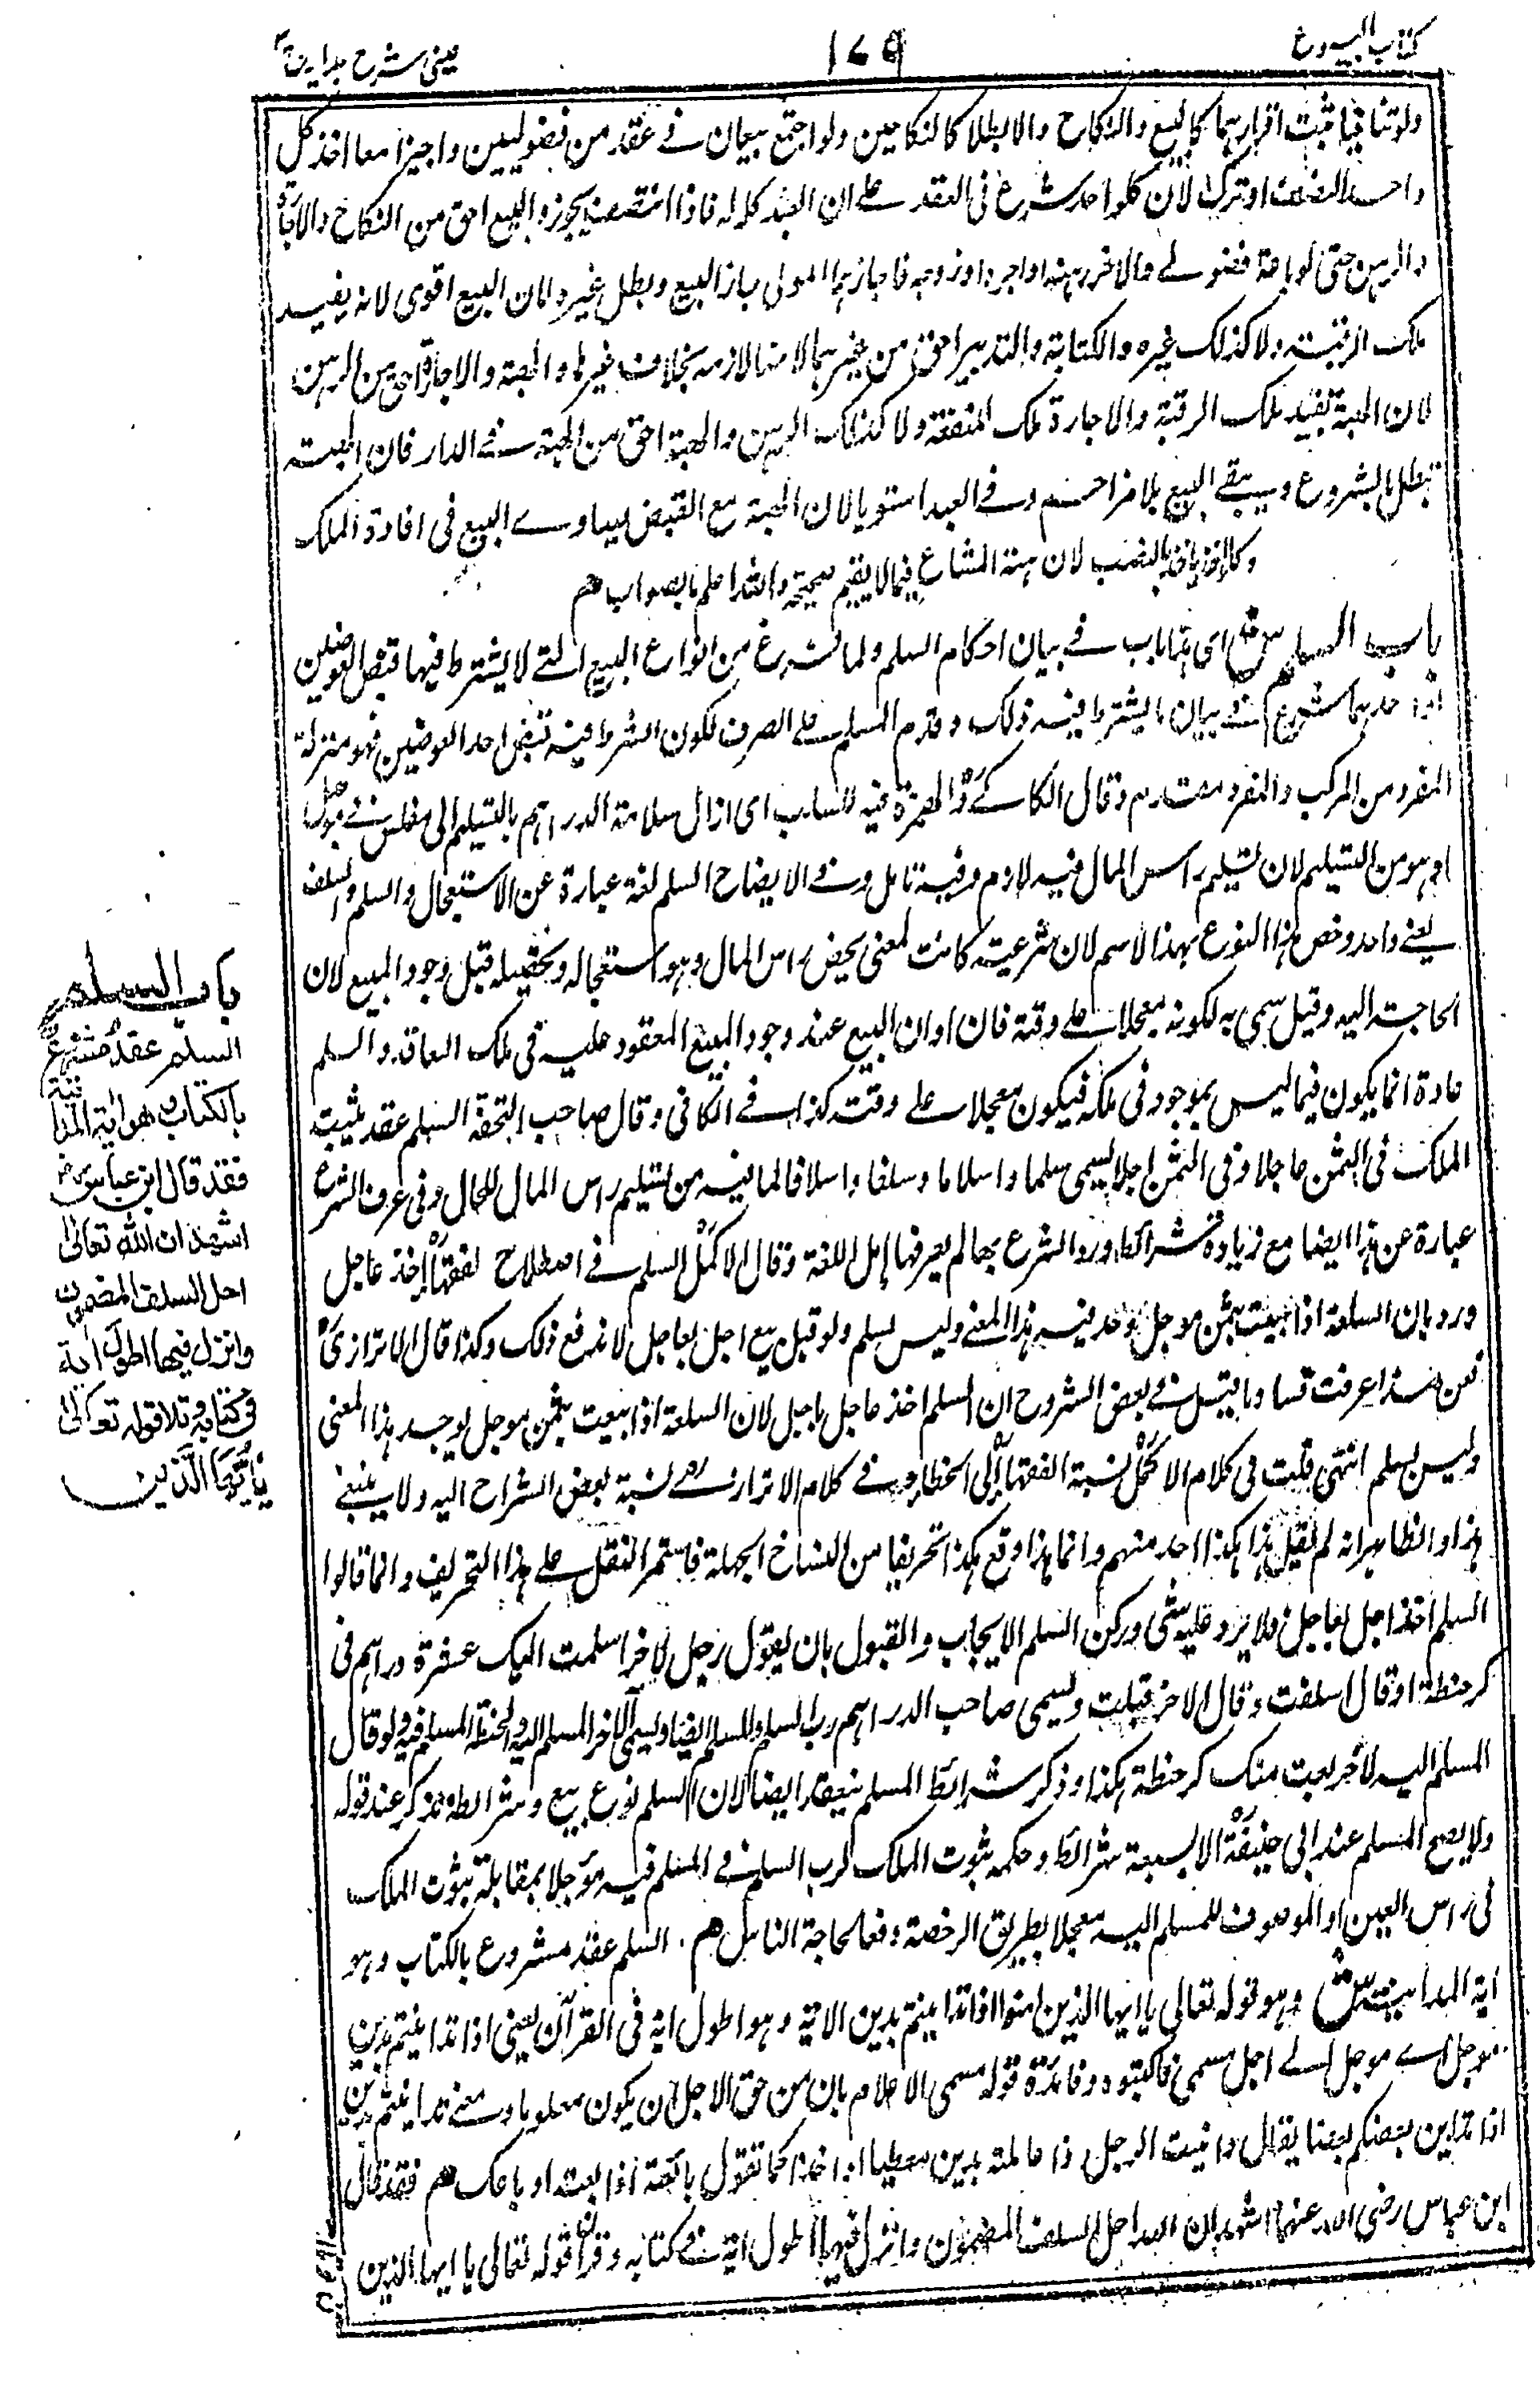 كتاب البيوع
١٧٩
عينى شرح هداية ج ٣
ولو تنافيا ثبت اقرارهما كالبيع والنكاح والا بطلا كالنكاحين ولو اجتمع بيعان فى عقد من فضوليين واجيزا معا اخذ كل
واحد النصف او ترك لان كلواحد شرع فى العقد على ان العبد كله له فاذا انتقص يجوز والبيع احق من النكاح والاجارة
والرهن حتى لو باعه فضولى والاخر رهنه او اجره او زوجه فاجازهما المولى جاز البيع وبطل غيره لان البيع اقوى لانه يفيد
ملك الرقبة ولا كذلك غيره والكتابة والتدبير احق من غيرهما لانها لازمة بخلاف غيرها والهبة والاجارة احق من الرهن
لان الهبة تفيد ملك الرقبة والاجارة ملك المنفعة ولا كذلك الرهن والهبة احق من الهبة فى الدار فان الهبة
تبطل بالشروع ويبقى البيع بلا مزاحم وفى العبد استويا لان الهبة مع القبض يساوى البيع فى افادة الملك
وكل اخذ ياخذ بالنصف لان هبة المشاع فيما لا يقسم صحيحة والله اعلم بالصواب هم
باب السلم ش اى هذا باب فى بيان احكام السلم ولما شرغ من انواع البيع التى لا يشترط فيها قبض العوضين
او احدهما شرع فى بيان ما يشترط فيه ذلك وقدم السلم على الصرف لكون الشرط فيه قبض احد العوضين فهو منزلة
المفرد من المركب والمفرد مقدم وقال الكاكى والهمزة فيه للسلب اى ازال سلامة الدراهم بالتسليم الى مفلس فى مؤجل
او هو من التسليم لان تسليم راس المال فيه لازم وفيه تامل وفى الايضاح السلم لغة عبارة عن الاستعجال والسلم والسلف
بمعنى واحد وخص هذا النوع بهذا الاسم لان شرعيته كانت لمعنى يخص راس المال وهو استعجاله وتحصيله قبل وجود المبيع لان
الحاجة اليه وقيل سمى به لكونه معجلا على وقته فان اوان البيع عند وجود المبيع المعقود عليه فى ملك العاقد والسلم
عادة انما يكون فيما ليس بموجود فى ملكه فيكون معجلا على وقته كذا فى الكافى وقال صاحب التحفة السلم عقد يثبت
الملك فى الثمن عاجلا وفى المثمن اجلا يسمى سلما واسلاما وسلفا واسلافا لما فيه من تسليم راس المال للحال وفى عرف الشرع
عبارة عن هذا ايضا مع زيادة شرائط ورد الشرع بها لم يعرفها اهل اللغة وقال الاكمل السلم فى اصطلاح الفقهاء اخذ عاجل
ورد بان السلعة اذا بيعت بثمن مؤجل يوجد فيه هذا المعنى وليس بسلم ولو قيل بيع اجل بعاجل لاندفع ذلك وكذا قال الاترازى
فمن هذا عرفت فساد ما قيل فى بعض الشروح ان السلم اخذ عاجل باجل لان السلعة اذا بيعت بثمن مؤجل يوجد هذا المعنى
وليس بسلم انتهى قلت فى كلام الاكمل نسبة الفقهاء الى الخطا وفى كلام الاترازى نسبة بعض الشراح اليه ولا ينبغى
هذا والظاهر انه لم يقل هذا هكذا احد منهم وانما هذا وقع هكذا تحريفا من النساخ الجهلة فاستمر النقل على هذا التحريف وانما قالوا
السلم اخذ اجل بعاجل فلا يرد عليه شى وركن السلم الايجاب والقبول بان يقول رجل لاخر اسلمت اليك عشرة دراهم فى
كر حنطة او قال اسلفت وقال الاخر قبلت ويسمى صاحب الدراهم رب السلم والمسلم ايضا ويسمى الاخر المسلم اليه والحنطة المسلم فيه ولو قال
المسلم اليه لاخر بعت منك كر حنطة بكذا وذكر شرائط السلم ينعقد ايضا لان السلم نوع بيع وشرائطه تذكر عند قوله
ولا يصح السلم عند ابى حنيفة الا بسبعة شرائط وحكمه ثبوت الملك لرب السلم فى المسلم فيه مؤجلا بمقابلة ثبوت الملك
فى راس العين او الموصوف للمسلم اليه معجلا بطريق الرخصة دفعا لحاجة الناس هم السلم عقد مشروع بالكتاب وهو
اية المداينة ش وهو قوله تعالى يا ايها الذين امنوا اذا تداينتم بدين الاية وهو اطول اية فى القرآن يعنى اذا تداينتم بدين
مؤجل اى مؤجل الى اجل مسمى فاكتبوه وفائدة قوله مسمى الاعلام بان من حق الاجل ان يكون معلوما ومعنى تداينتم بدين
اذا تداين بعضكم بعضا يقال داينت الرجل اذا عاملته بدين معطيا او اخذا كما تقول بايعته اذا بعته او باعك هم فقد قال
ابن عباس رضى الله عنهما اشهد ان الله احل السلف المضمون وانزل فيها اطول اية فى كتابه وقرأ قوله تعالى يا ايها الذين
باب السلم
السلم عقد مشروع
بالكتاب وهو اية المداينة
فقد قال ابن عباس رض
اشهد ان الله تعالى
احل السلف المضمون
وانزل فيها اطول اية
فى كتابه وتلا قوله تعالى
يٰاَيُّهَا الَّذِين